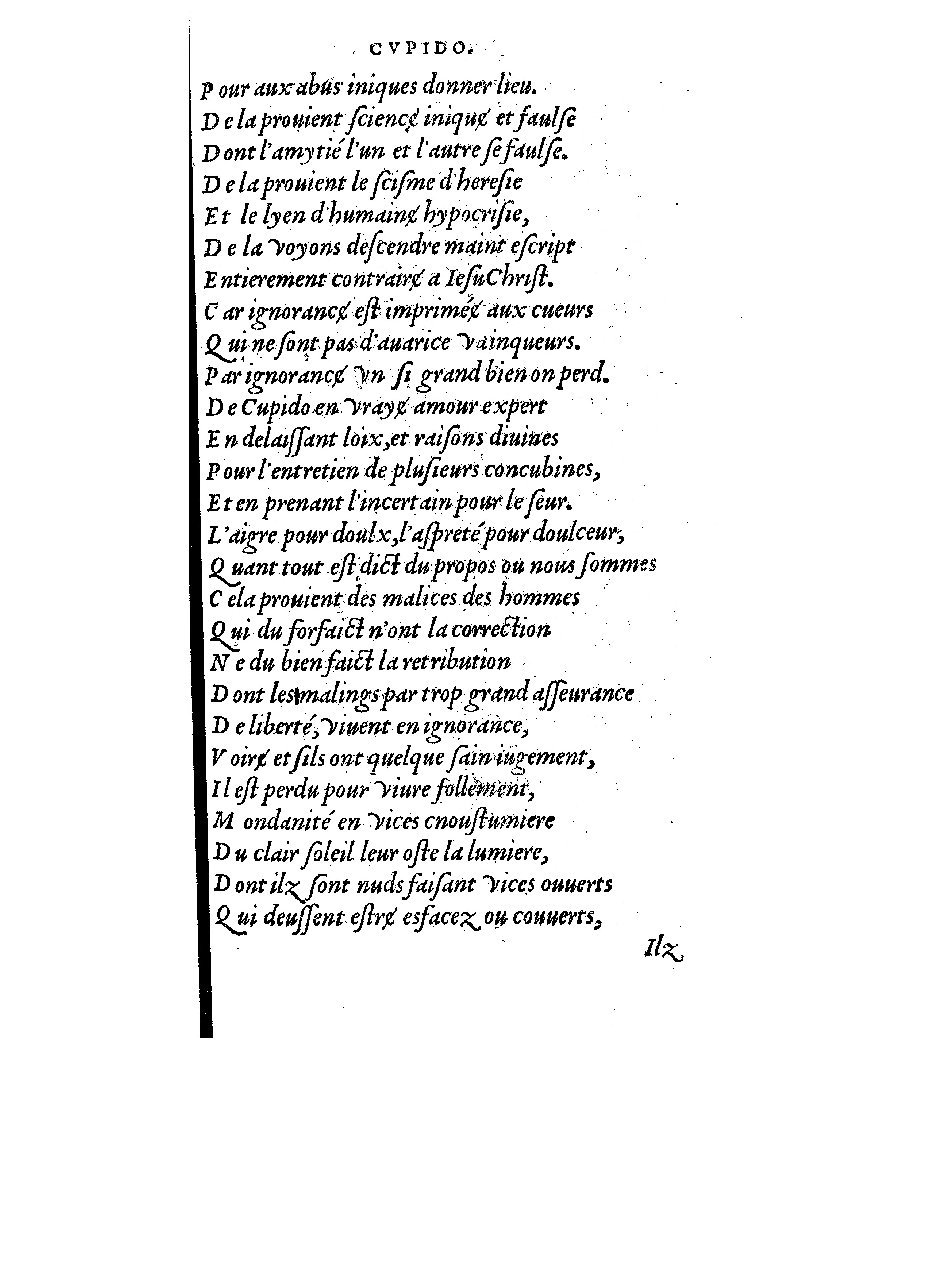 CVPIDO.
Pour aux abus iniques donner lieu.
De la prouient ſciencɇ iniquɇ et faulſe
Dont l'amytié l'un et l'autre ſe faulſe.
De la prouient le ſciſme d'hereſie
Et le lyen d'humainɇ hypocriſie,
De la voyons deſcendre maint eſcript
Entierement contrairɇ a IeſuChriſt.
Car ignorancɇ eſt impriméɇ aux cueurs
Qui ne ſont pas d'auarice vainqueurs.
Par ignorancɇ vn ſi grand bien on perd.
De Cupido en vrayɇ amour expert
En delaiſſant loix, et raiſons diuines
Pour l'entretien de pluſieurs concubines,
Et en prenant l'incertain pour le ſeur.
L'aigre pour doulx, l'aſpreté pour doulceur,
Quant tout eſt dict du propos ou nous ſommes
Cela prouient des malices des hommes
Qui du forfaict n'ont la correction
Ne du bienfaict la retribution
Dont les malings par trop grand aſſeurance
De liberté, viuent en ignorance,
Voirɇ et ſils ont quelque ſain iugement,
Il eſt perdu pour viure follement,
Mondanité en vices cnouſtumiere
Du clair ſoleil leur oſte la lumiere,
Dont ilz ſont nuds faiſant vices ouuerts
Qui deuſſent eſtrɇ esfacez ou couuerts,
Ilz